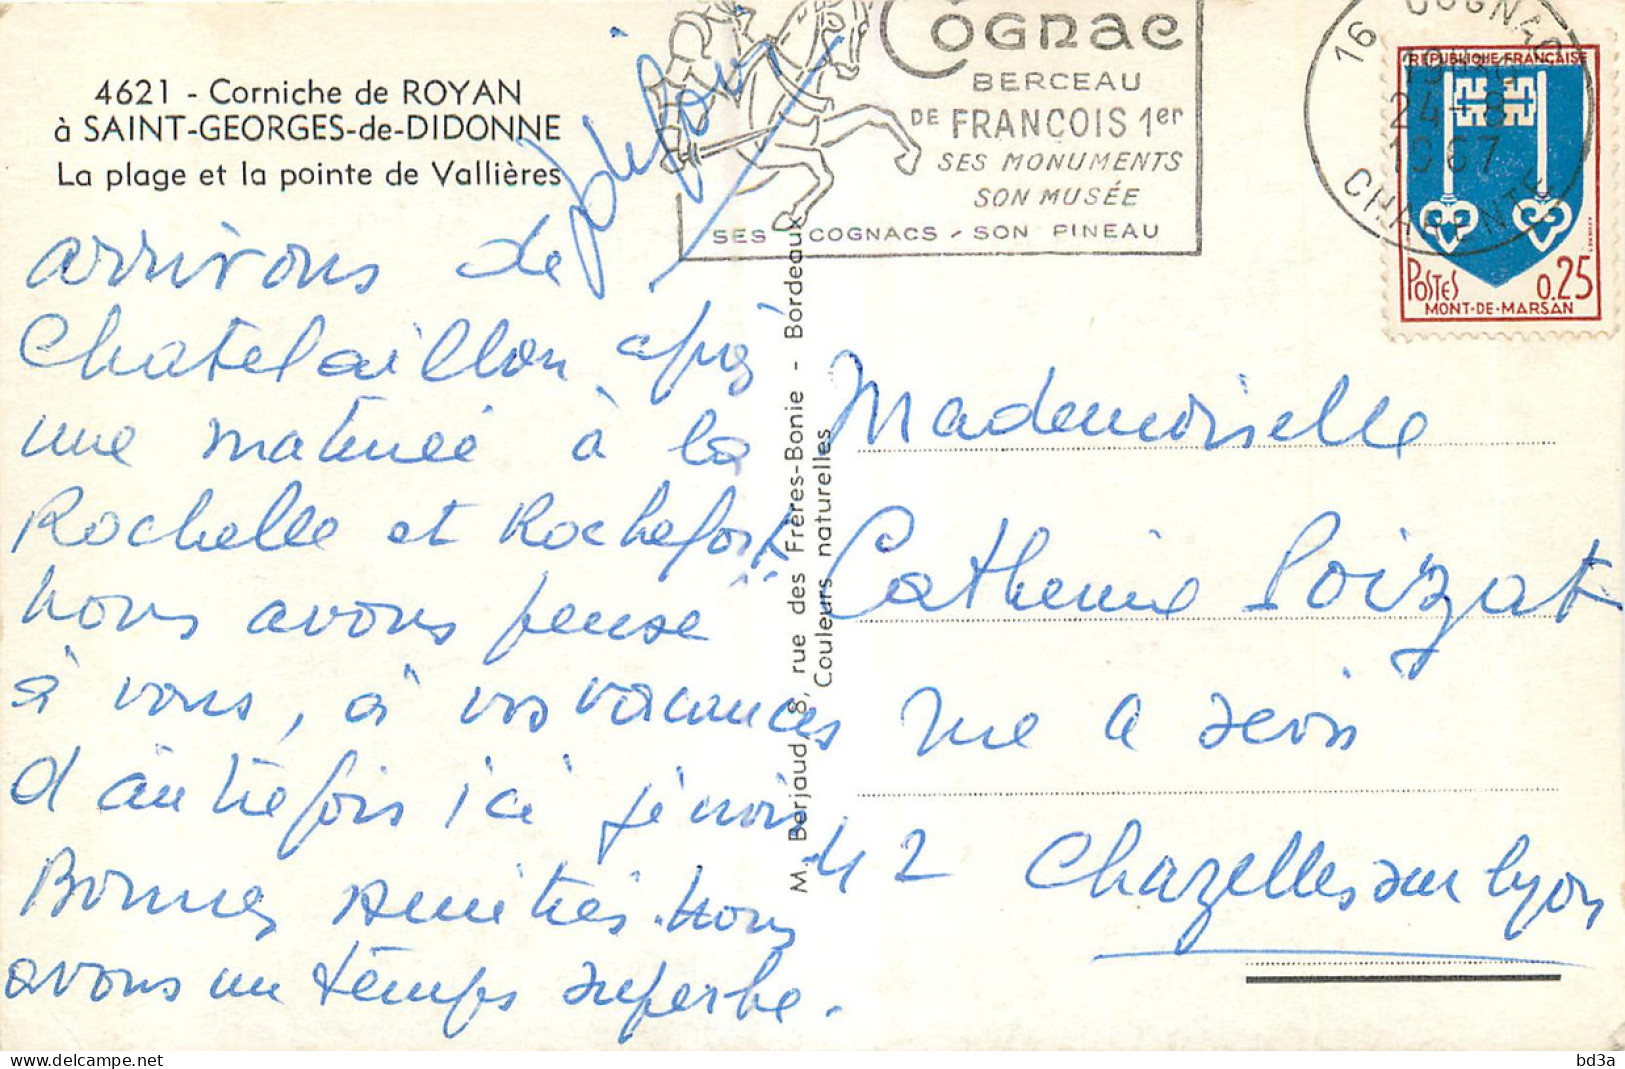 4621 - Corniche de ROYAN
à SAINT-GEORGES-de-DIDONNE
La plage et la pointe de Vallières
COGNAC
BERCEAU
DE FRANÇOIS 1er
SES MONUMENTS
SON MUSÉE
SES COGNACS - SON PINEAU
16 COGNAC
24-8
1967
CHARENTE
REPUBLIQUE FRANÇAISE
POSTES 0,25
MONT-DE-MARSAN
arrivons de
Chatelaillon après
une matinée à la
Rochelle et Rochefort
Nous avons pensé
à vous, à vos vacances
d'autrefois ici
Bonnes amitiés. Nous
avons un temps superbe.
M. Berjaud, 8, rue des Frères-Bonie - Bordeaux
Couleurs naturelles
Mademoiselle
Catherine Poizat
rue
42 Chazelles sur Lyon
bd3a